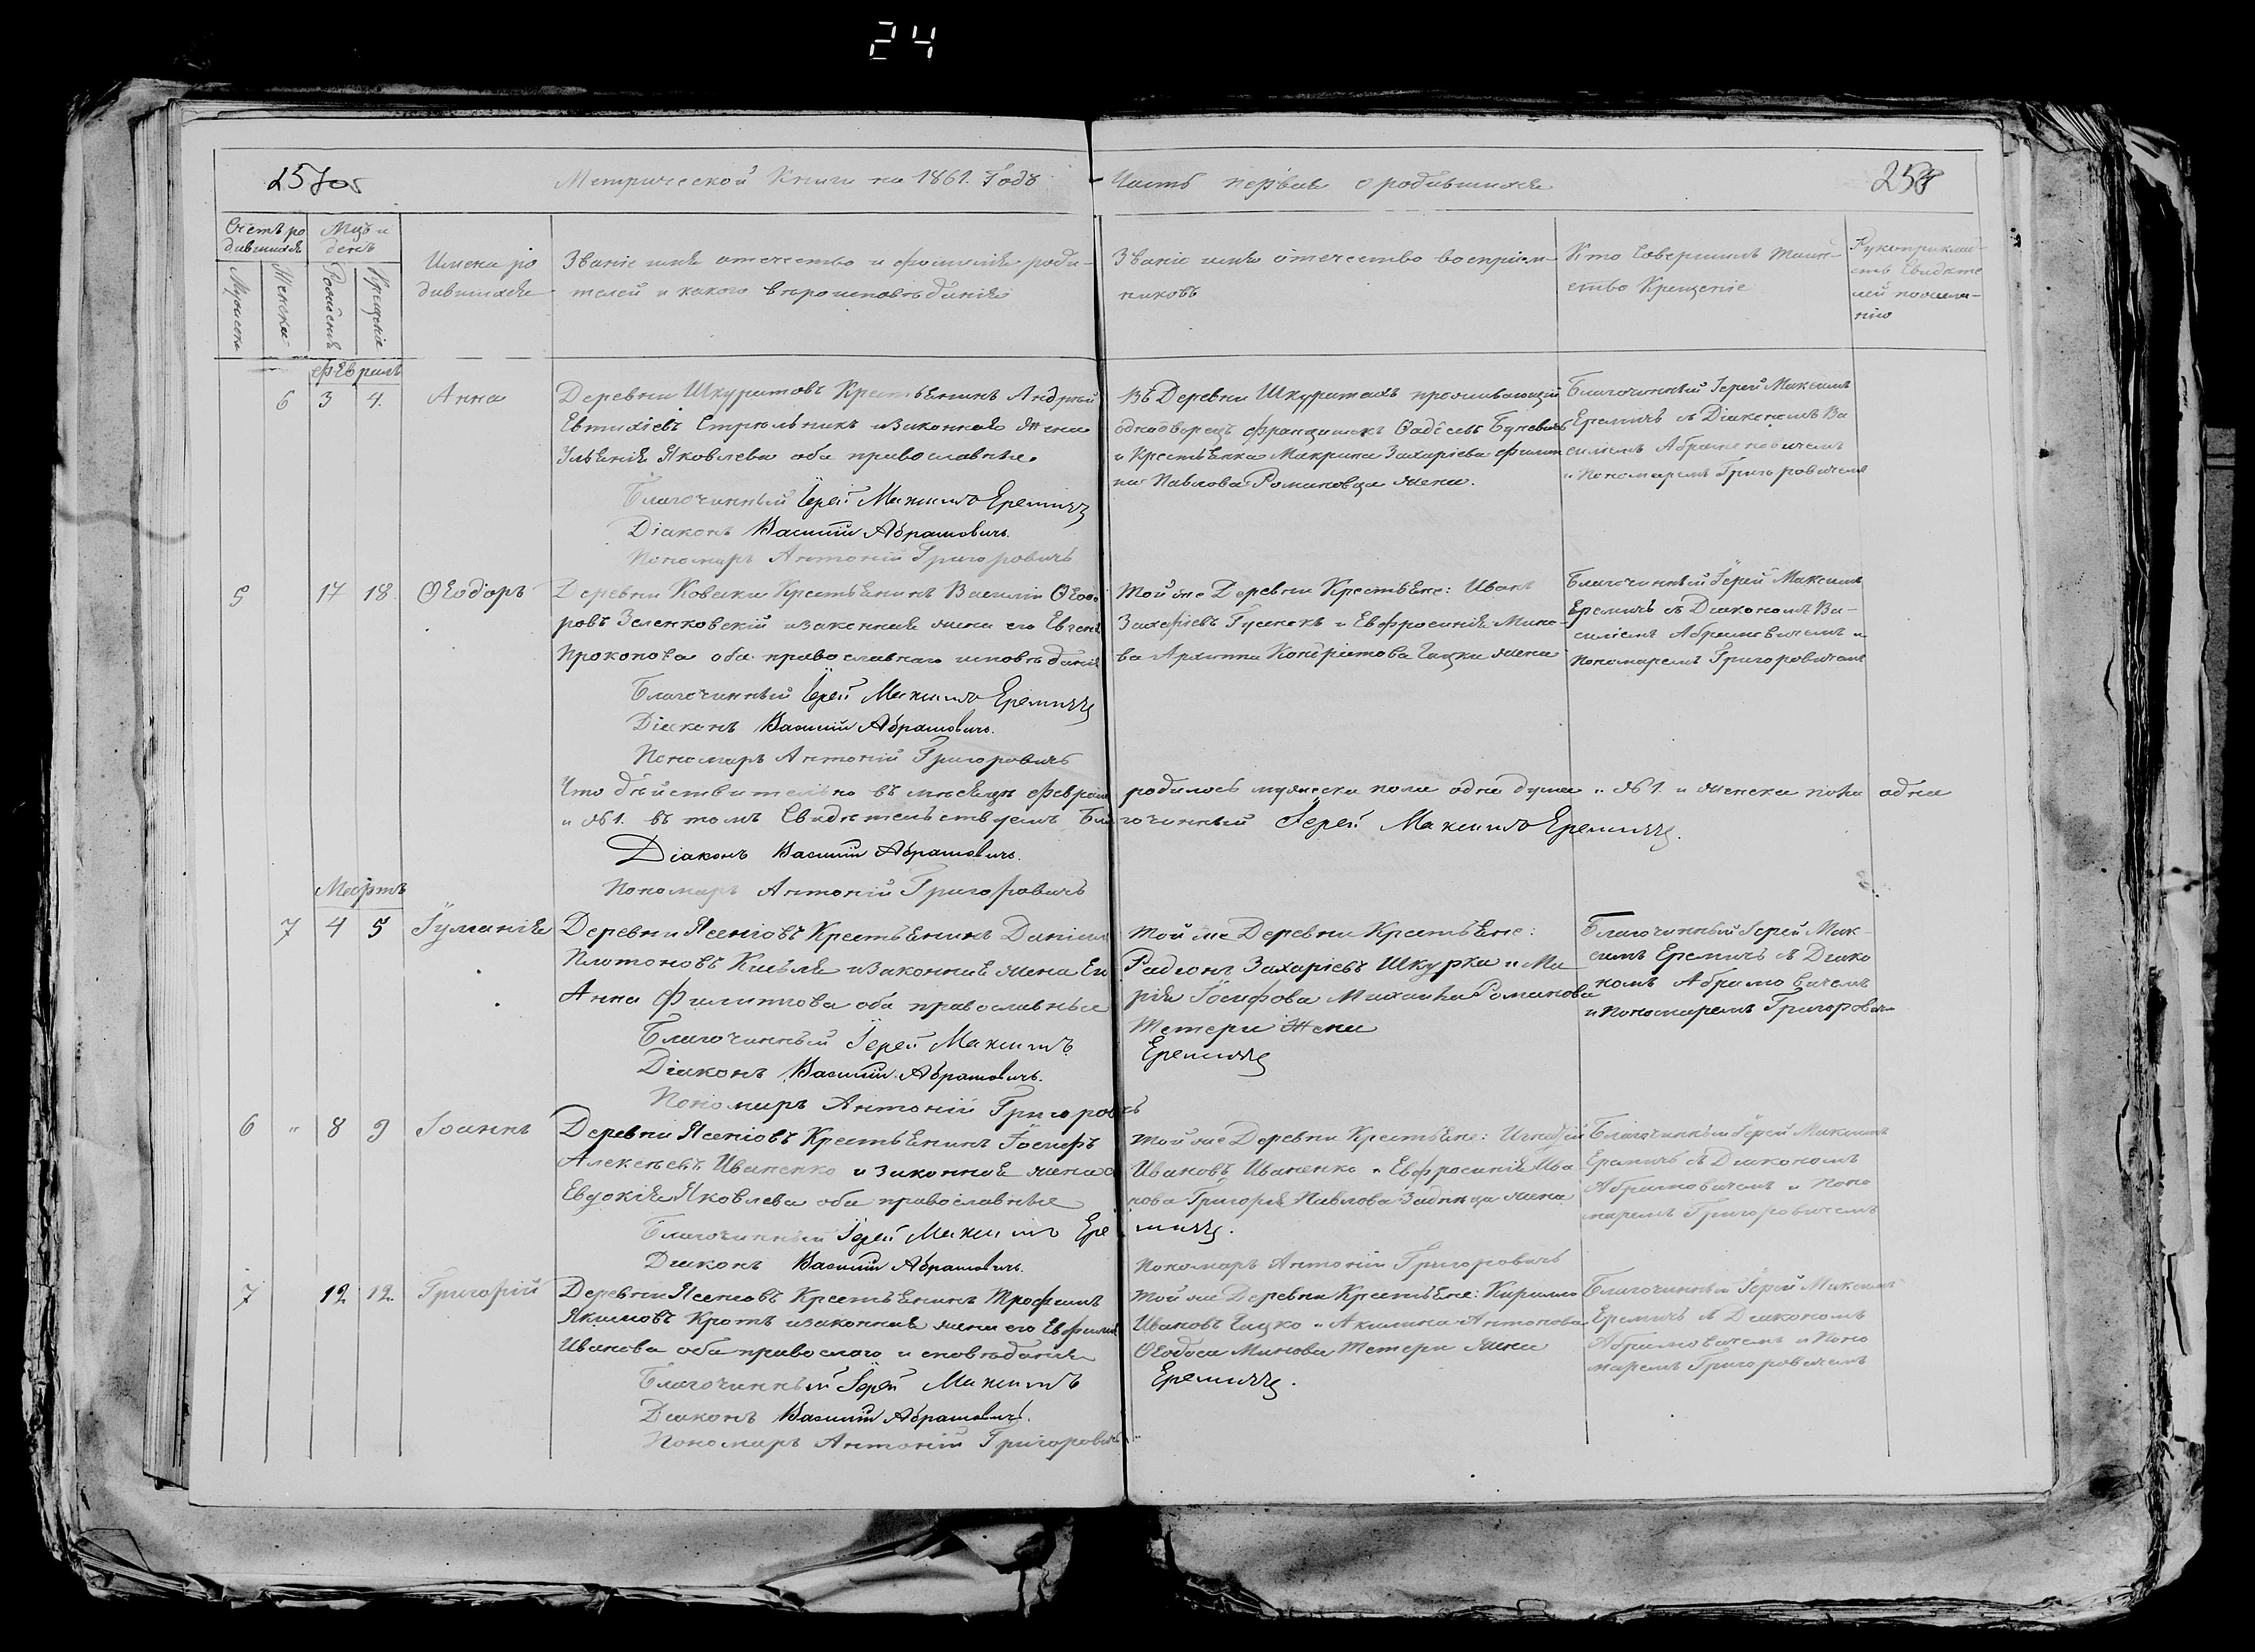 24
Метрической Книги на 1861. Годъ
Часть первая о родившихся
258
Счетъ ро
дившихся
Мцъ и
день
Имена ро
дившихся
Званіе имя отечество и фамилія роди-
телей и какого вѣроисповѣданія
Званіе имя отечество воспріем-
никовъ
Кто совершилъ таин-
ство Крещеніе
Рукоприклад-
ство свидѣте
лей по желан-
нію
Мужеска
Женска
Рожденія
Крещеніе
Февраль
6 3 4. Анна
Деревни Шкуратовъ Крестьянинъ Андрей
Евтихіевъ Стрельникъ и законная жена
Ульянія Яковлева оба православные.
Благочинный Іерей Максимъ Еремичъ
Діаконъ Василій Абрамовичъ.
Пономарь Антоній Григоровичъ
Въ Деревни Шкуратахъ проживающій
однодворецъ Францишекъ Фадеевъ
и Крестьянка Макрина Захаріева Филип
па Павлова Романовца жена.
Благочинный Іерей Максимъ
Еремичъ съ Діакономъ Ва
силіемъ Абрамовичемъ
и Пономаремъ Григоровичемъ
5 17 18. Ѳеодоръ
Деревни Коваки Крестьянинъ Василій Ѳеодо
ровъ Зеленковскій и законная жена его Евгенія
Прокопова оба православнаго исповѣданія
Благочинный Іерей Максимъ Еремичъ
Діаконъ Василій Абрамовичъ.
Пономарь Антоній Григоровичъ
Той же Деревни Крестьяне: Иванъ
Захаріевъ Гусенокъ и Евфросинія Мино-
ва Архиппа Кондратова Гацки жена
Благочинный Іерей Максимъ
Еремичъ съ Діакономъ Ва-
силіемъ Абрамовичемъ и
Пономаремъ Григоровичемъ
Что дѣйствительно въ мѣсяцѣ Февралѣ родилось мужеска пола одна душа и №1. и женска пола одна
и №1. въ томъ Свидѣтельствуемъ Благочинный Іерей Максимъ Еремичъ.
Діаконъ Василій Абрамовичъ.
Пономарь Антоній Григоровичъ
Мартъ
7 4 5 Іуліанія
Деревни Ясеновъ Крестьянинъ Даніилъ
Платоновъ и законная жена Ег
Анна Филиппова оба православные
Благочинный Іерей Максимъ
Діаконъ Василій Абрамовичъ.
Пономарь Антоній Григоровичъ
Той же Деревни Крестьяне:
Радіонъ Захаріевъ Шкурка и Ма
рія Іосифова Михаила Романова
Тетери Жена
Еремичъ
Благочинный Іерей Мак-
симъ Еремичъ съ Діако
номъ Абрамовичемъ
и Пономаремъ Григоровичемъ
6 " 8 9 Іоаннъ
Деревни Ясеновъ Крестьянинъ Іосифъ
Алексѣевъ Иваненко и законная жена
Евдокія Яковлева оба православные
Благочинный Іерей Максимъ Ере
мичъ.
Діаконъ Василій Абрамовичъ.
Пономарь Антоній Григоровичъ
Той же Деревни Крестьяне: Игнатій
Ивановъ Иваненко и Евфросинія Ива
нова Григорія Павлова жена
Благочинный Іерей Максимъ
Еремичъ съ Діакономъ
Абрамовичемъ и Поно
маремъ Григоровичемъ
7 12 12. Григорій
Деревни Ясеновъ Крестьянинъ Трофимъ
Якимовъ Кротъ и законная жена его Евфимія
Иванова оба правослаго исповѣданія
Благочинный Іерей Максимъ
Діаконъ Василій Абрамовичъ.
Пономарь Антоній Григоровичъ
Той же Деревни Крестьяне: Кирилло
Ивановъ Гацко и Акилина Антонова
Ѳеодоса Минова Тетери жена
Еремичъ.
Благочинный Іерей Максимъ
Еремичъ съ Діакономъ
Абрамовичемъ и Поно
маремъ Григоровичемъ